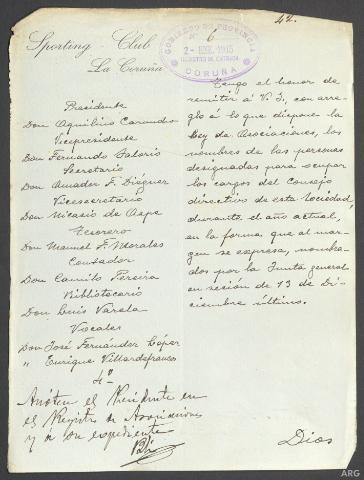 42.
Sporting-Club
La Coruña
GOBIERNO DE PROVINCIA
Nº 6
2-ENE.1915
REGISTRO DE ENTRADA
CORUÑA
Presidente
Don Aquilino
Vicepresidente
Don Fernando Salorio
Secretario
Don Amador F. Diéguez
Vicesecretario
Don Nicasio de Aspe
Tesorero
Don Manuel F. Morales
Contador
Don Camilo Pereira
Bibliotecario
Don Luis Varela
Vocales
Don José Fernández López
" Enrique Villardefrancos
Tengo el honor de
remitir á V. I., con arre-
glo á lo que dispone la
Ley de Asociaciones, los
nombres de las personas
designadas para ocupar
los cargos del Consejo
directivo de esta Sociedad,
durante el año actual,
en la forma que al mar-
gen se expresa, nombra-
dos por la Junta general
en sesión de 13 de Di-
ciembre último.
Anótese el Presidente en
el Registro de Asociaciones
y á su expediente
Dios
ARG